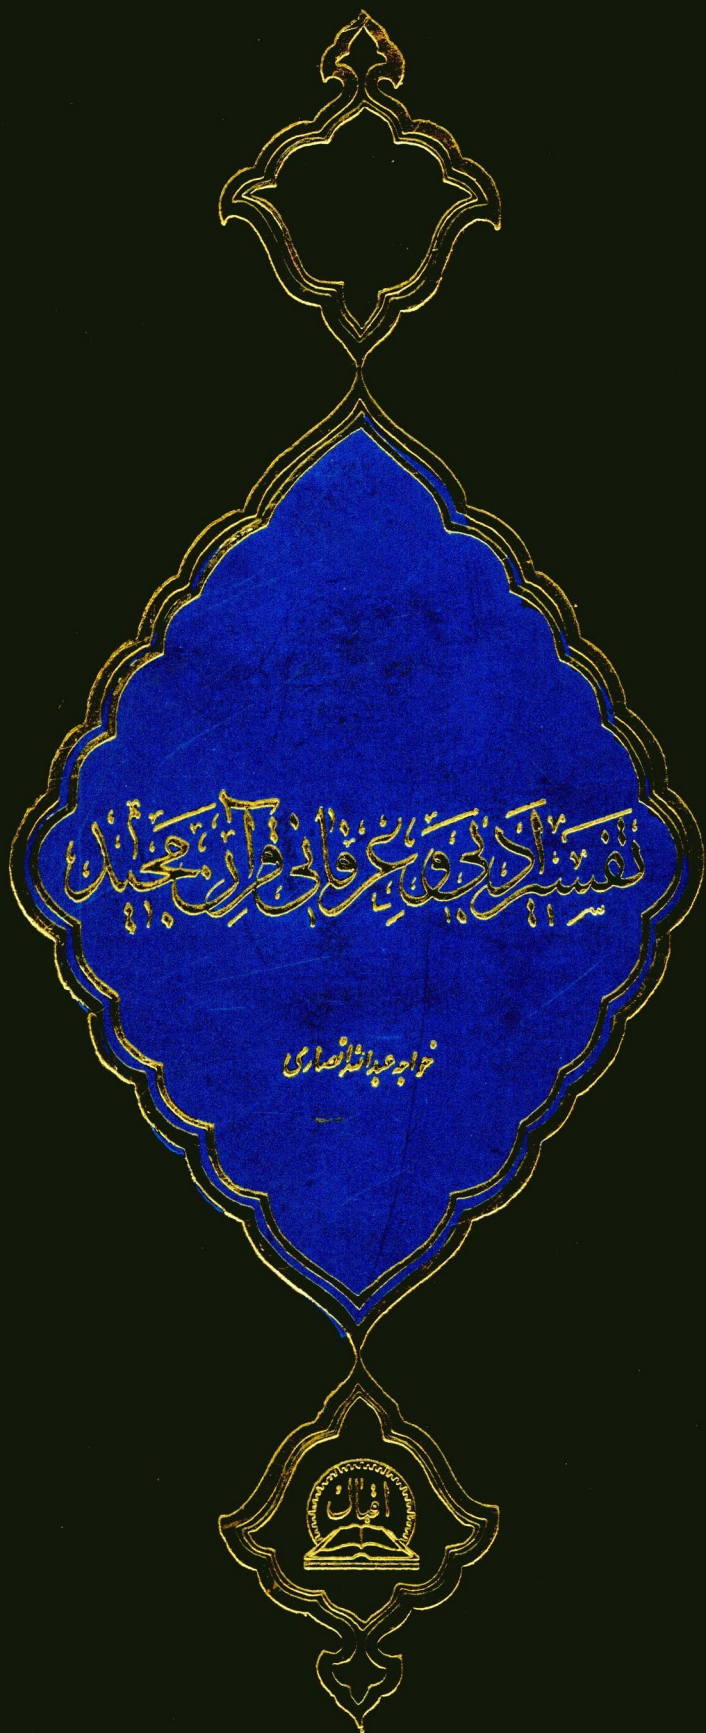 تفسیر ادبی و عرفانی قرآن مجید
خواجه عبدالله انصاری
اقبال